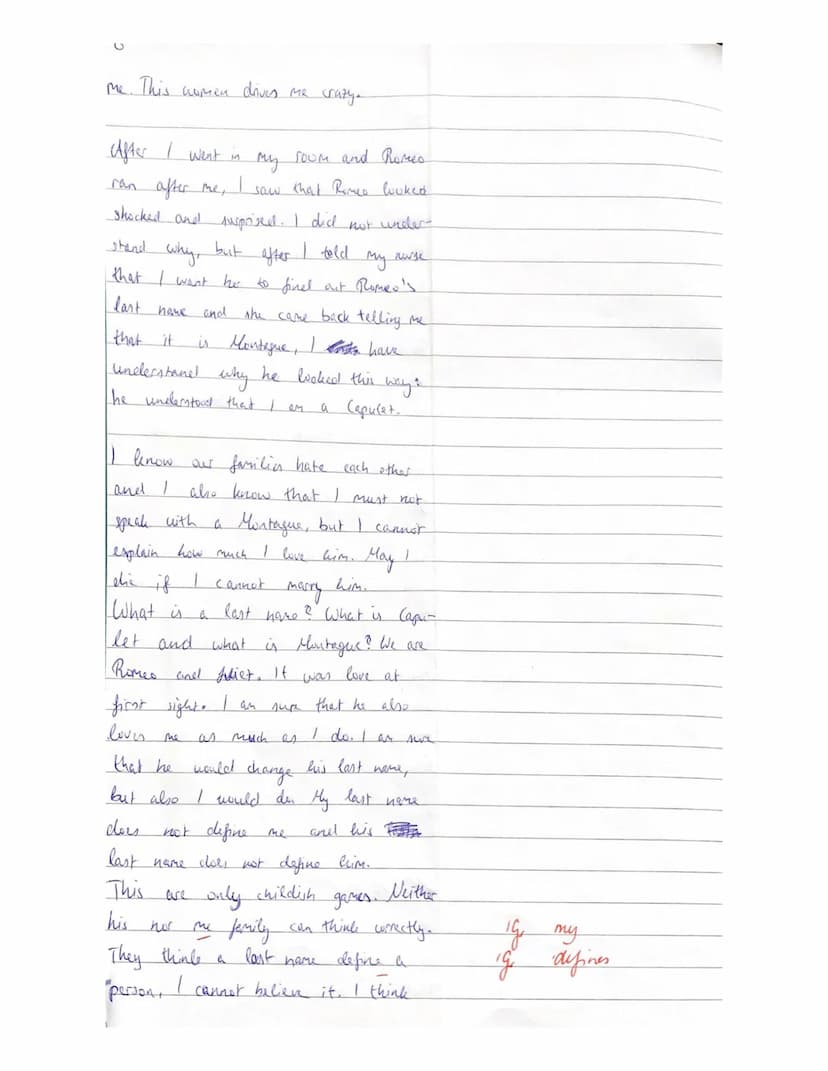 me. This women drives me crazy.
After I went in my room and Romeo
ran after me, I saw that Romeo looked
shocked and surprised. I did not under-
stand why, but after I told my nurse
that I want her to find out Romeo's
last name and she came back telling me
that it is Montague, I have
understand why he looked this way:
he understood that I am a Capulet.
I know our families hate each other
and I also know that I must not
speak with a Montague, but I cannot
explain how much I love him. May I
die if I cannot marry him.
What is a last name? What is Capu-
let and what is Montague? We are
Romeo and Juliet. It was love at
first sight. I am sure that he also
loves me as much as I do. I am sure
that he would change his last name,
but also I would do. My last name
does not define me and his
last name does not define him.
This are only childish games. Neither
his nor me family can think correctly. 1G my
They think a last name define a 1G defines
person, I cannot believe it. I think